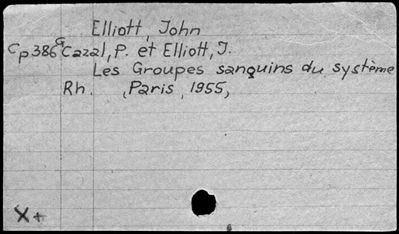 Elliott, John
Cp386G Cazal, P. et Elliott, J.
Les Groupes sanguins du système
Rh. , Paris, 1955,
X+